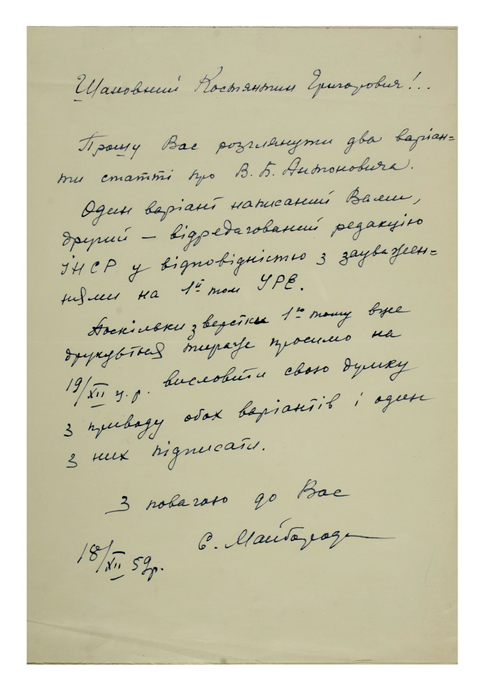 Шановний Костянтин Григорович!..
Прошу Вас розглянути два варіан=
ти статті про В. Б. Антоновича.
Один варіант написаний Вами,
другий — відредагований редакцією
ІНСР у відповідністю з зауважен=
нями на 1й том УРЕ.
Поскільки з верстки 1го тому вже
друкується тираж просимо на
19/XII ц.р. висловити свою думку
з приводу обох варіантів і один
з них підписати.
З повагою до Вас
Є. Майборода
18/XII 59р.